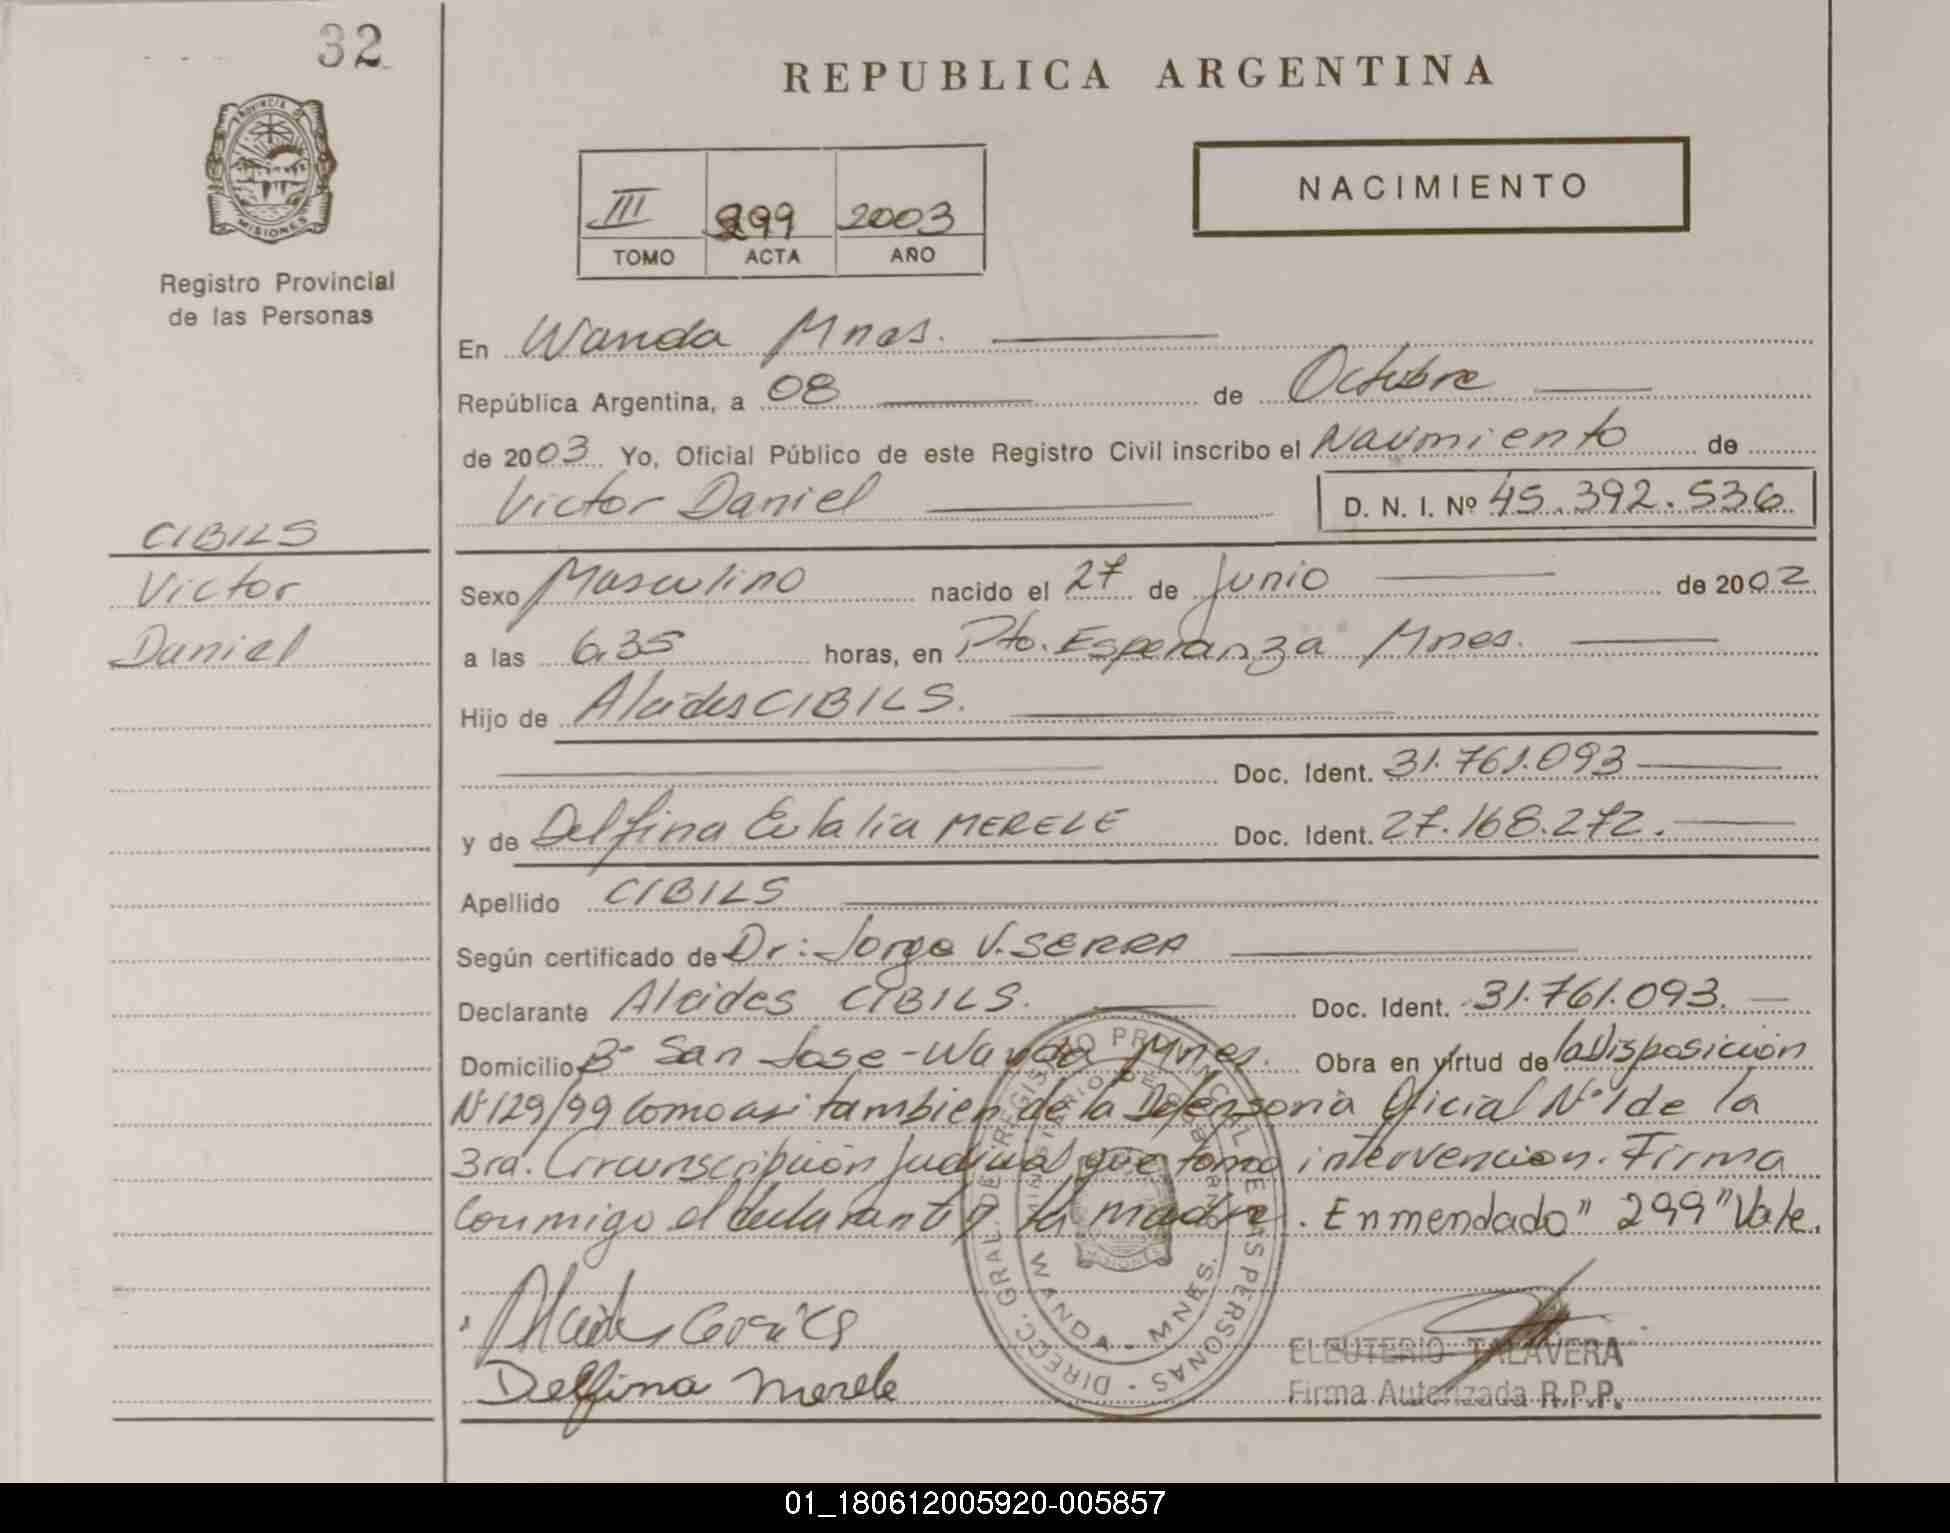 32
PROVINCIA DE
MISIONES
Registro Provincial
de las Personas
REPUBLICA ARGENTINA
NACIMIENTO
III 299 2003
TOMO ACTA AÑO
En Wanda Mnes.
República Argentina, a 08 de Octubre
de 2003 Yo, Oficial Público de este Registro Civil inscribo el Nacimiento de
Victor Daniel D. N. I. Nº 45.392.536
CIBILS
Victor
Daniel
Sexo Masculino nacido el 27 de Junio de 2002
a las 6,35 horas, en Pto. Esperanza Mnes.
Hijo de Alcides CIBILS.
Doc. Ident. 31.761.093
y de Delfina Eulalia MERELE Doc. Ident. 27.168.272.
Apellido CIBILS
Según certificado de Dr: Jorge V. SERRA
Declarante Alcides CIBILS. Doc. Ident. 31.761.093.
Domicilio Bº San Jose - Wanda Mnes. Obra en virtud de la Disposición
Nº 129/99 como asi tambien de la Defensoria Oficial Nº 1 de la
3ra. Circunscripción Judicial que tomo intervencion. Firma
Conmigo el declarante y la madre. Enmendado "299" Vale.
Alcides
Delfina Merele
DIRECC. GRAL. DE REGISTRO PROVINCIAL DE LAS PERSONAS
MINISTERIO DE GOBIERNO
WANDA - MNES.
ELEUTERIO TALAVERA
Firma Autorizada R.P.P.
01_180612005920-005857